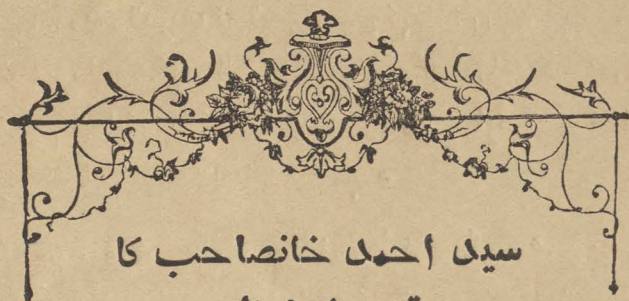 سید احمد خانصاحب کا